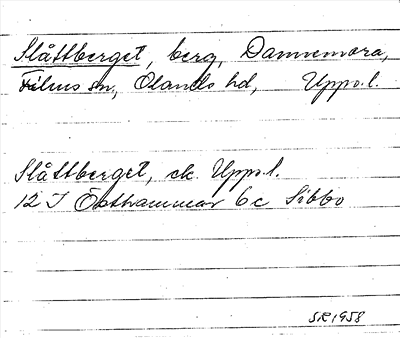 Slåttberget, berg, Dannemora,
Films sn, Olands hd, Upps. l.
Slåttberget, ek. Upps. l.
12 I Östhammar 6c Sibbo
SR 1958